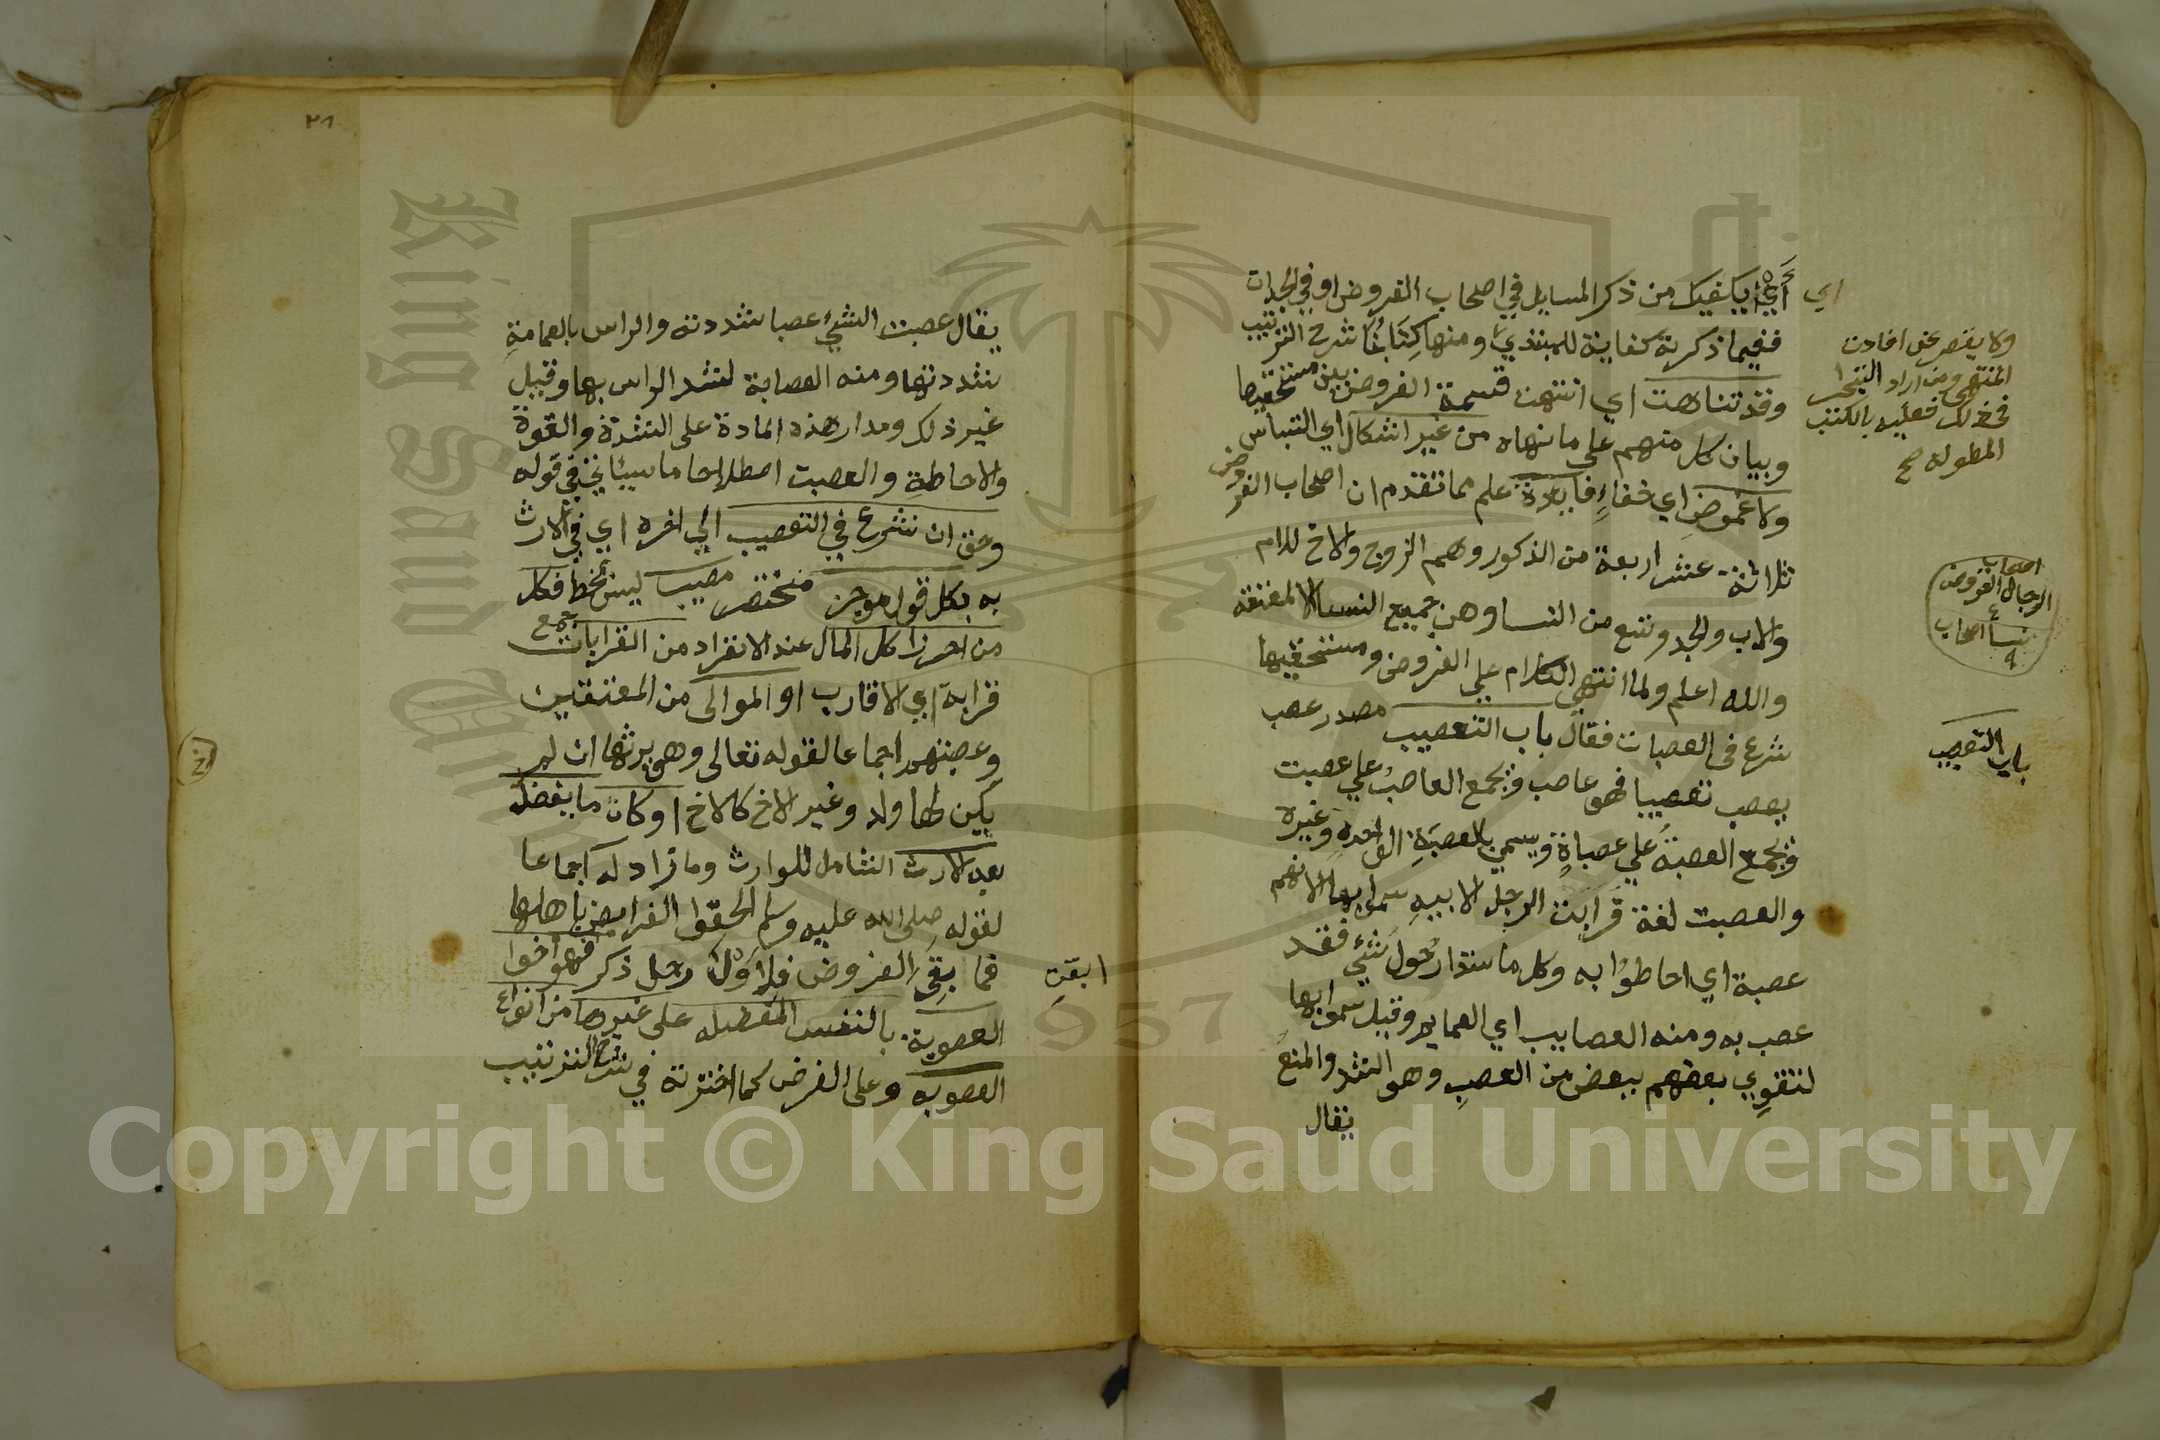 اي يكفيك من ذكر المسايل في اصحاب الفروض او في الجدات
ففيما ذكرته كفاية للمبتدي ومنها كتابنا شرح الترتيب
وقد تناهت اي انتهت قسمة الفروض بين مستحقيها
وبيان كل منهم على ما نهاه من غير اشكال اي التباس
ولا غموض اي خفاء فايدة علم مما تقدم ان اصحاب الفروض
ثلاثة عشر اربعة من الذكور وهم الزوج والاخ للام
والاب والجد وتسع من النسا وهن جميع النسا الا المعتقة
والله اعلم ولما انتهى الكلام علي الفروض ومستحقيها
شرع في العصبات فقال باب التعصيب مصدر عصب
يعصب تعصيبا فهو عاصب ويجمع العاصب علي عصبت
ويجمع العصبة علي عصباة ويسمي بالعصبة الواحد وغيره
والعصبت لغة قرابت الرجل لابيه سموا بها لانهم
عصبة اي احاطوا به وكل ما ستدار حول شئ فقد
عصب به ومنه العصايب اي العمايم وقيل سموا بها
لتقوي بعضهم ببعض من العصب وهو الشد والمنع
يقال
اي
ولا يقصر عن افادت
المنتهي ومن اراد التبحر
في ذلك فعليه بالكتب
المطوله صح
اصحاب
الرجال الفروض
٤
نسا اصحاب
٩
باب التعصيب
٢١
يقال عصبت الشئ عصبا شددته والراس بالعمامة
شددتها ومنه العصابة لشد الراس بها وقيل
غير ذلك ومدار هذه المادة على الشدة والقوة
والاحاطة والعصبت اصطلاحا ما سيئاتي في قوله
وحق ان نشرع في التعصيب الي اخره اي في الارث
به بكل قول موجز مختصر مصيب ليس بخطا فكل
من احرز كل المال عند الانفراد من القرابات جمع
قرابة اي الاقارب او الموالي من المعتقين
وعصبتهم اجماعا لقوله تعالى وهو يرثها ان لم
يكن لها ولد وغير الاخ كالاخ او كان ما يفضل
بعد الارث الشامل للوارث وما زاد له اجماعا
لقوله صلى الله عليه وسلم الحقوا الفرايض باهلها
فما بقي الفروض فلاولى رجل ذكر فهو اخوا
العصوبة بالنفس المفضله على غيرها من انواع
العصوبه وعلى الفرض كما اخترته في شرح الترتيب
ابقت